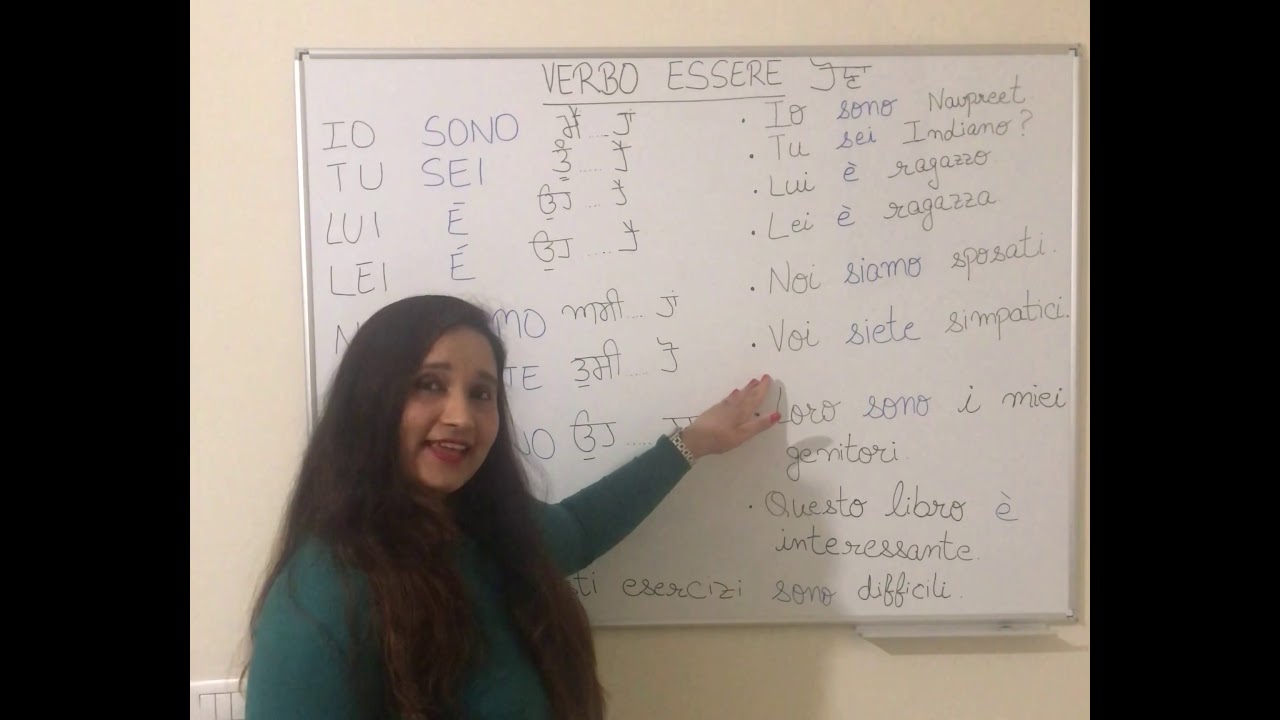 VERBO ESSERE ਹੋਣਾ
IO SONO ਮੈਂ .... ਹਾਂ
TU SEI ਤੂੰ ..... ਹੈਂ
LUI É ਉਹ .... ਹੈ
LEI É ਉਹ ..... ਹੈ
N MO ਅਸੀ .... ਹਾਂ
TE ਤੁਸੀ ..... ਹੋ
NO ਉਹ .....
. Io sono Navpreet
. Tu sei Indiano?
. Lui è ragazzo.
. Lei è ragazza
. Noi siamo sposati.
. Voi siete simpatici.
. Loro sono i miei
genitori.
. Questo libro è
interessante.
sti esercizi sono difficili.